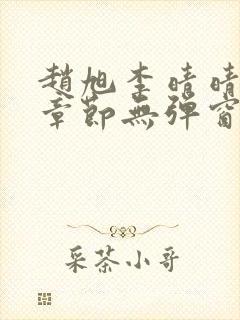 趙旭李晴晴
章節無彈窗
采茶小哥